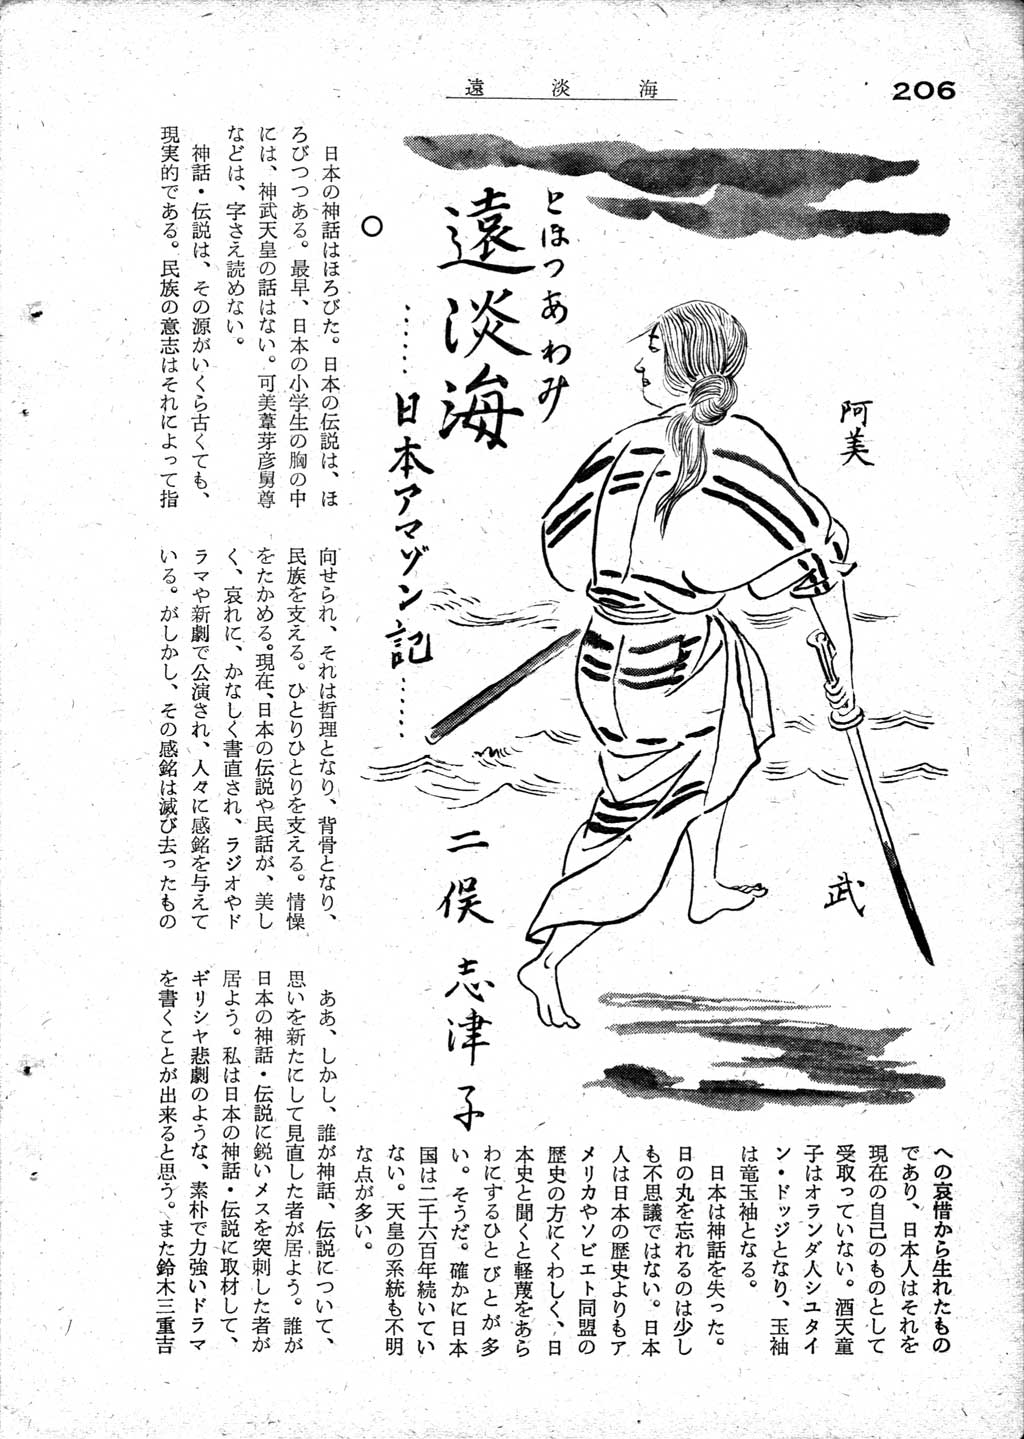 遠淡海
206
とほつあわみ
遠淡海
……日本アマゾン記……
二俣志津子
阿美
武
○
日本の神話はほろびた。日本の伝説は、ほ
ろびつつある。最早、日本の小学生の胸の中
には、神武天皇の話はない。可美葦芽彦舅尊
などは、字さえ読めない。
神話・伝説は、その源がいくら古くても、
現実的である。民族の意志はそれによって指
向せられ、それは哲理となり、背骨となり、
民族を支える。ひとりひとりを支える。情懆
をたかめる。現在、日本の伝説や民話が、美し
く、哀れに、かなしく書直され、ラジオやド
ラマや新劇で公演され、人々に感銘を与えて
いる。がしかし、その感銘は滅び去ったもの
への哀惜から生れたもの
であり、日本人はそれを
現在の自己のものとして
受取っていない。酒天童
子はオランダ人シユタイ
ン・ドッジとなり、玉袖
は竜玉袖となる。
日本は神話を失った。
日の丸を忘れるのは少し
も不思議ではない。日本
人は日本の歴史よりもア
メリカやソビエト同盟の
歴史の方にくわしく、日
本史と聞くと軽蔑をあら
わにするひとびとが多
い。そうだ。確かに日本
国は二千六百年続いてい
ない。天皇の系統も不明
な点が多い。
ああ、しかし、誰が神話、伝説について、
思いを新たにして見直した者が居よう。誰が
日本の神話・伝説に鋭いメスを突刺した者が
居よう。私は日本の神話・伝説に取材して、
ギリシャ悲劇のような、素朴で力強いドラマ
を書くことが出来ると思う。また鈴木三重吉